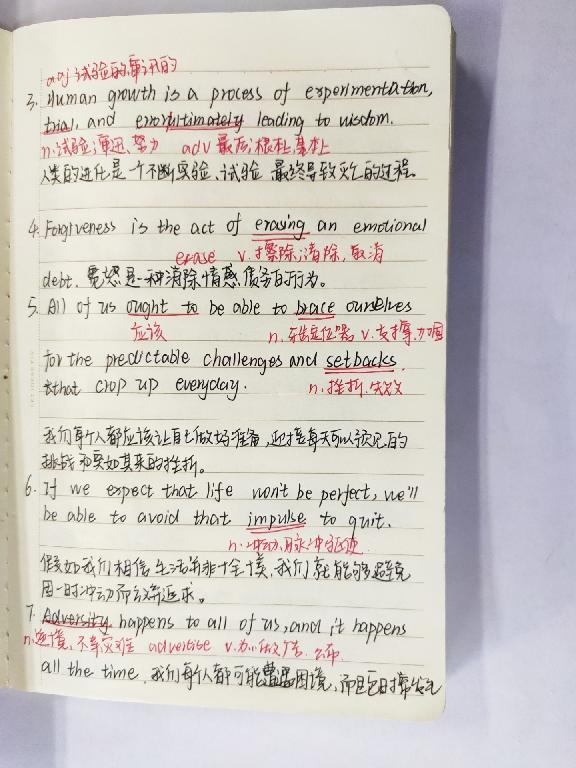 adj 试验的审讯的
3. Human growth is a process of experimentation,
trial, and error ultimately leading to wisdom.
n.试验;审迅,努力 adv 最后;根本;基本上
人类的进化是一个不断实验、试验 最终导致灭亡的过程.
4. Forgiveness is the act of erasing an emotional
erase v.擦除;清除,取消
debt. 宽恕是一种消除情感债务的行为。
5. All of us ought to be able to brace ourselves
应该 n. 牙齿定位器 v.支撑,加固
for the predictable challenges and setbacks
that crop up everyday. n.挫折.失败
我们每个人都应该让自己做好准备,迎接每天可以预见的
挑战和突如其来的挫折。
6. If we expect that life won't be perfect, we'll
be able to avoid that impulse to quit.
n.冲动,脉冲驱使
假如我们相信生活并非十全十美,我们就能够避免
因一时冲动而放弃追求。
7. Adversity happens to all of us, and it happens
n.逆境,不幸灾难 advertise v.为…做广告.公布
all the time. 我们每个人都可能遭遇困境,而且它时常发生